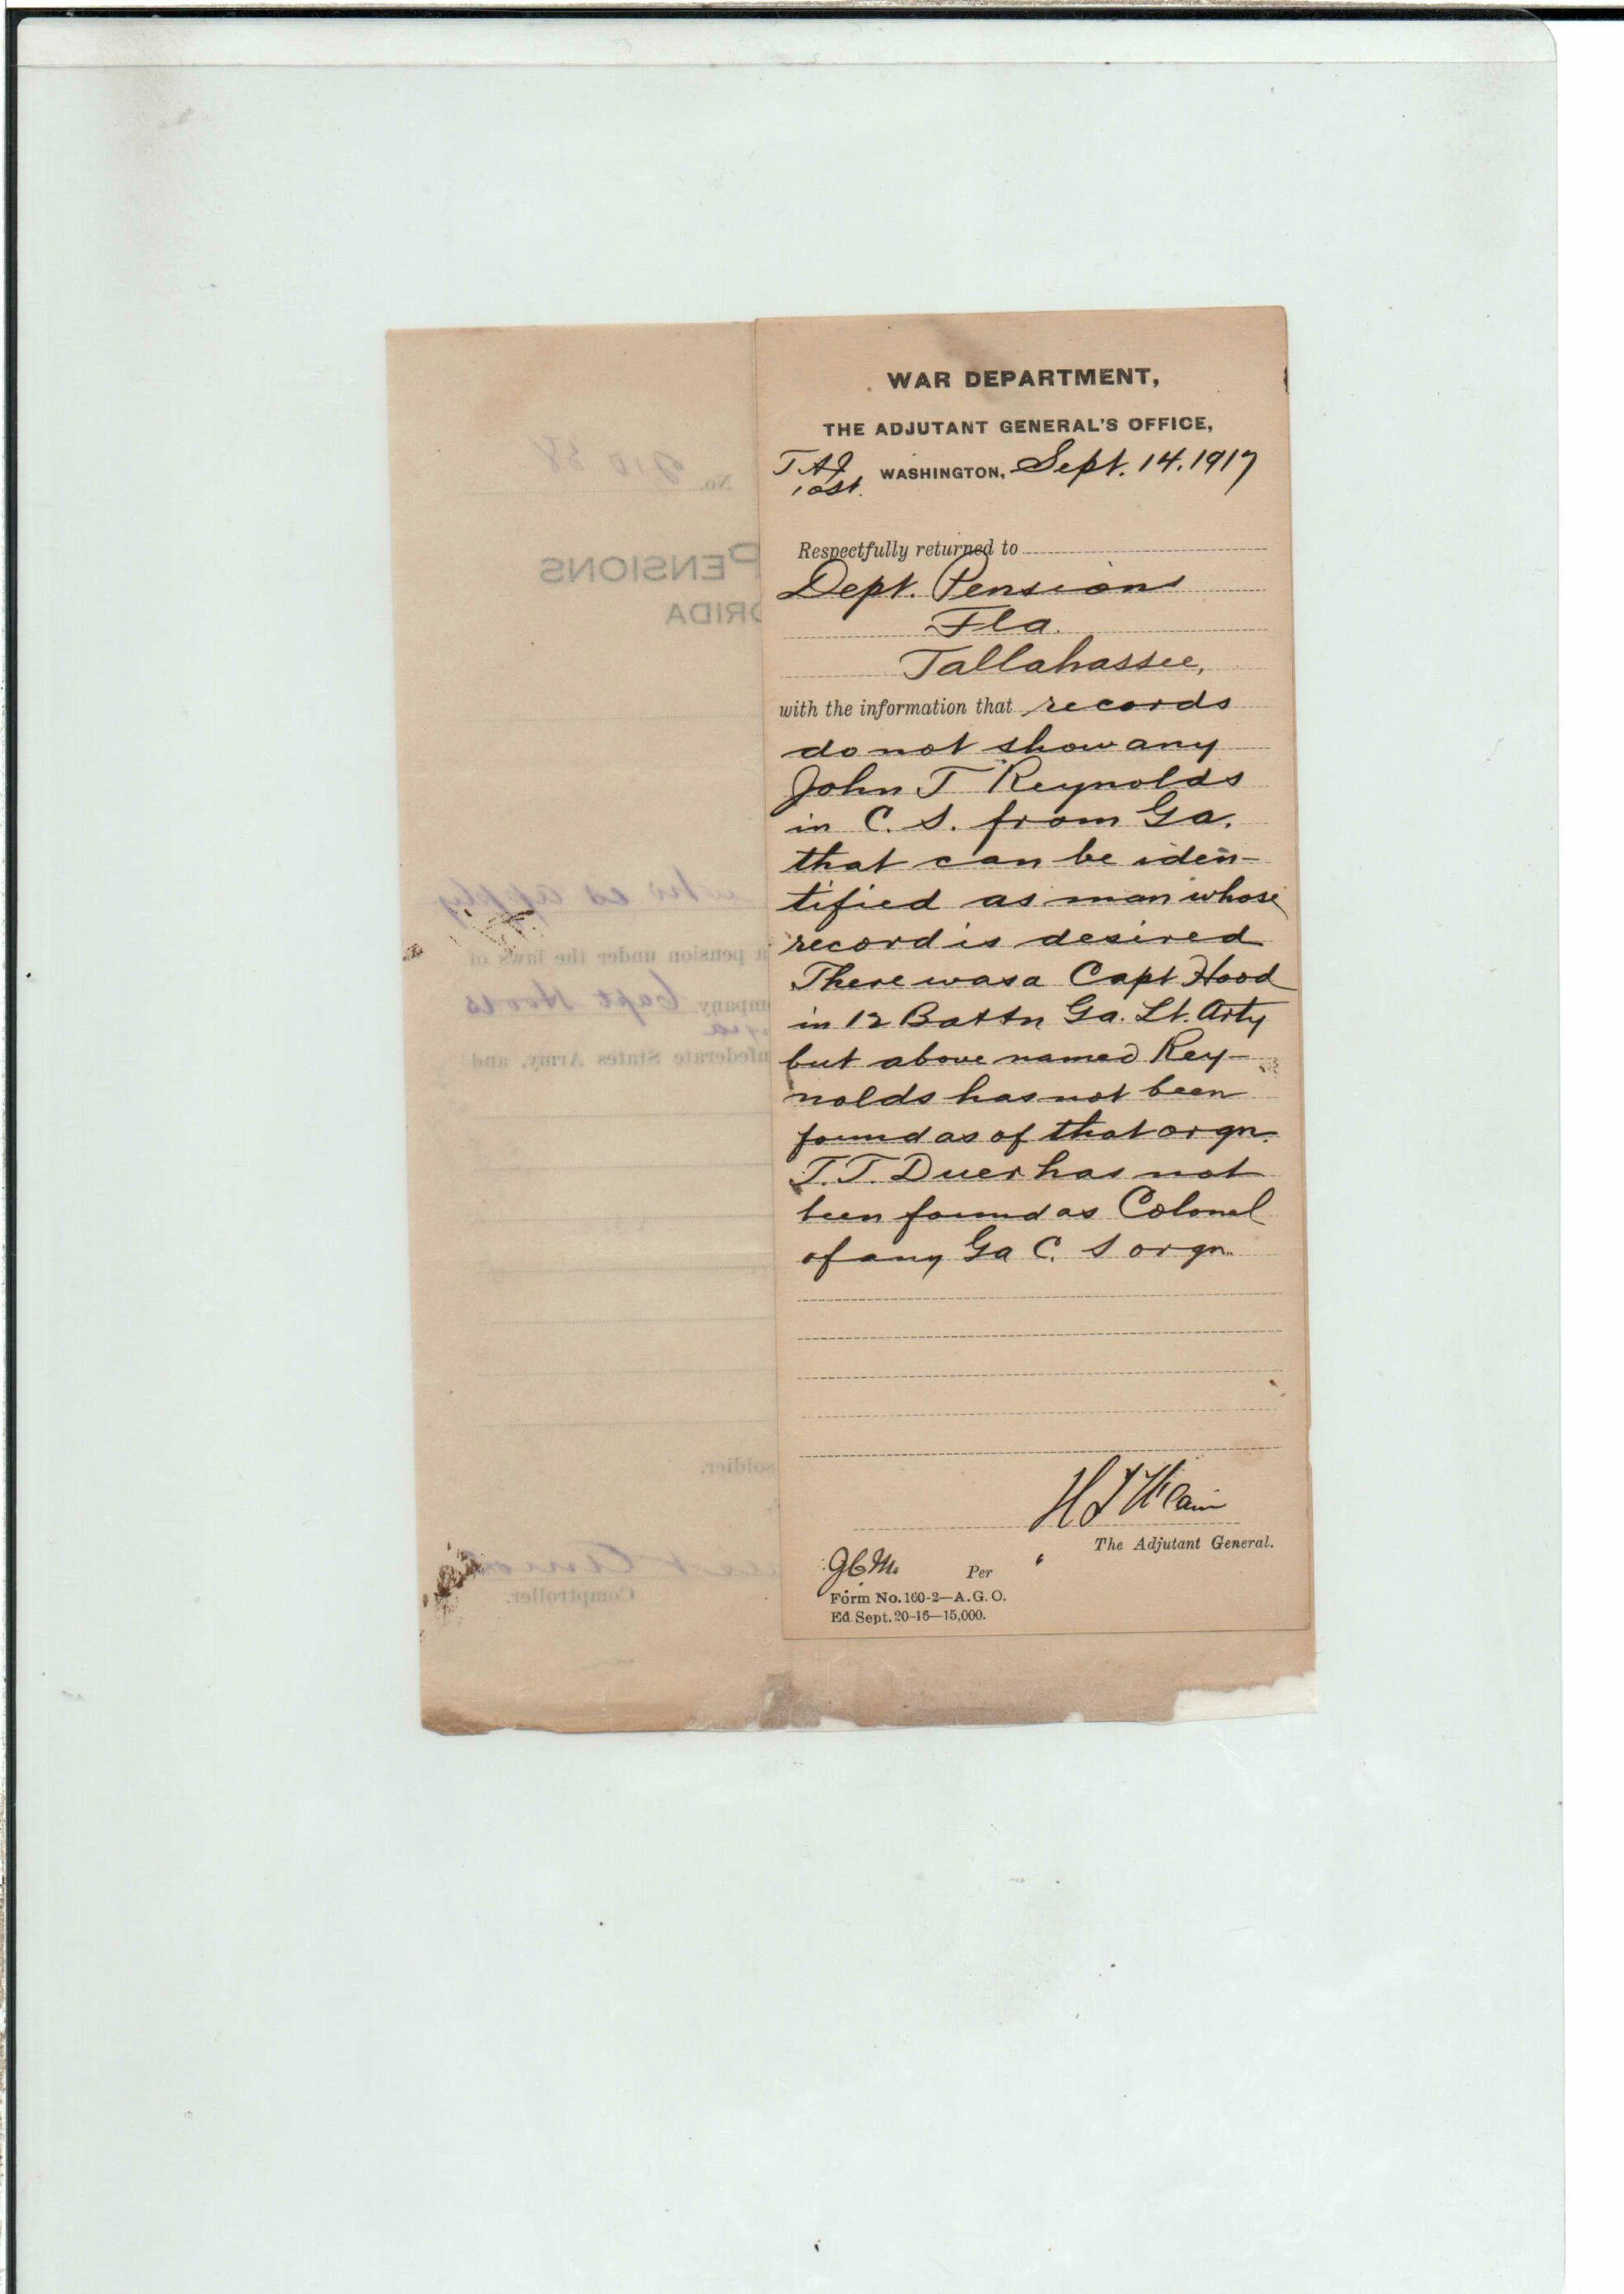 WAR DEPARTMENT,
THE ADJUTANT GENERAL'S OFFICE,
WASHINGTON, Sept. 14. 1917
Respectfully returned to
Dept. Pensions
Fla.
Tallahassee,
with the information that records
do not show any
John T Reynolds
in C. S. from Ga.
that can be iden-
tified as man whose
record is desired
There was a Capt Hood
in 12 Battn Ga. Lt. Arty
but above named Rey-
nolds has not been
found as of that orgn.
T. T. Duer has not
been found as Colonel
of any Ga C. S orgn.
The Adjutant General.
Per
Form No. 160-2—A. G. O.
Ed Sept. 20-16—15,000.
No. 910 58
PENSIONS
who es apply
a pension under the laws of
Capt
federate States Army, and
soldier.
Comptroller.